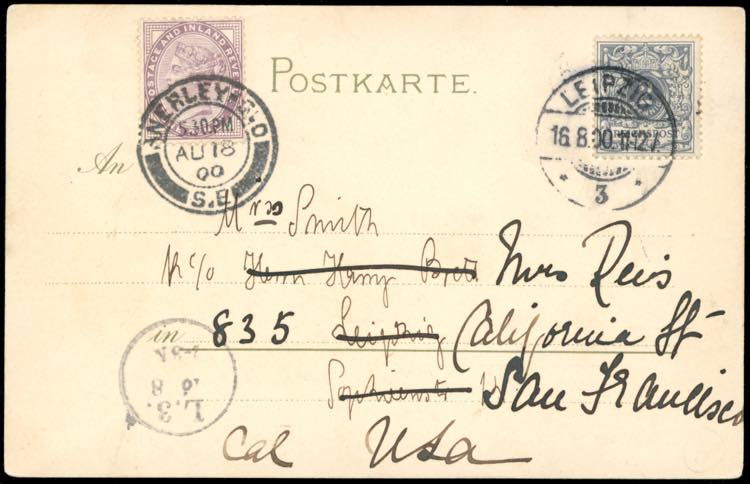 POSTAGE AND INLAND REVE
POSTKARTE.
ANERLEY B.O
5.30.PM
AU 18
00
S.E
LEIPZIG
16.8.00. 11-12V.
* 3 *
REICHSPOST
An
Mrs Smith
c/o Herrn Harry Mrs Reis
in 835 Leipzig California St
Sophienstr San Francisco
Cal USA
L.3.
8